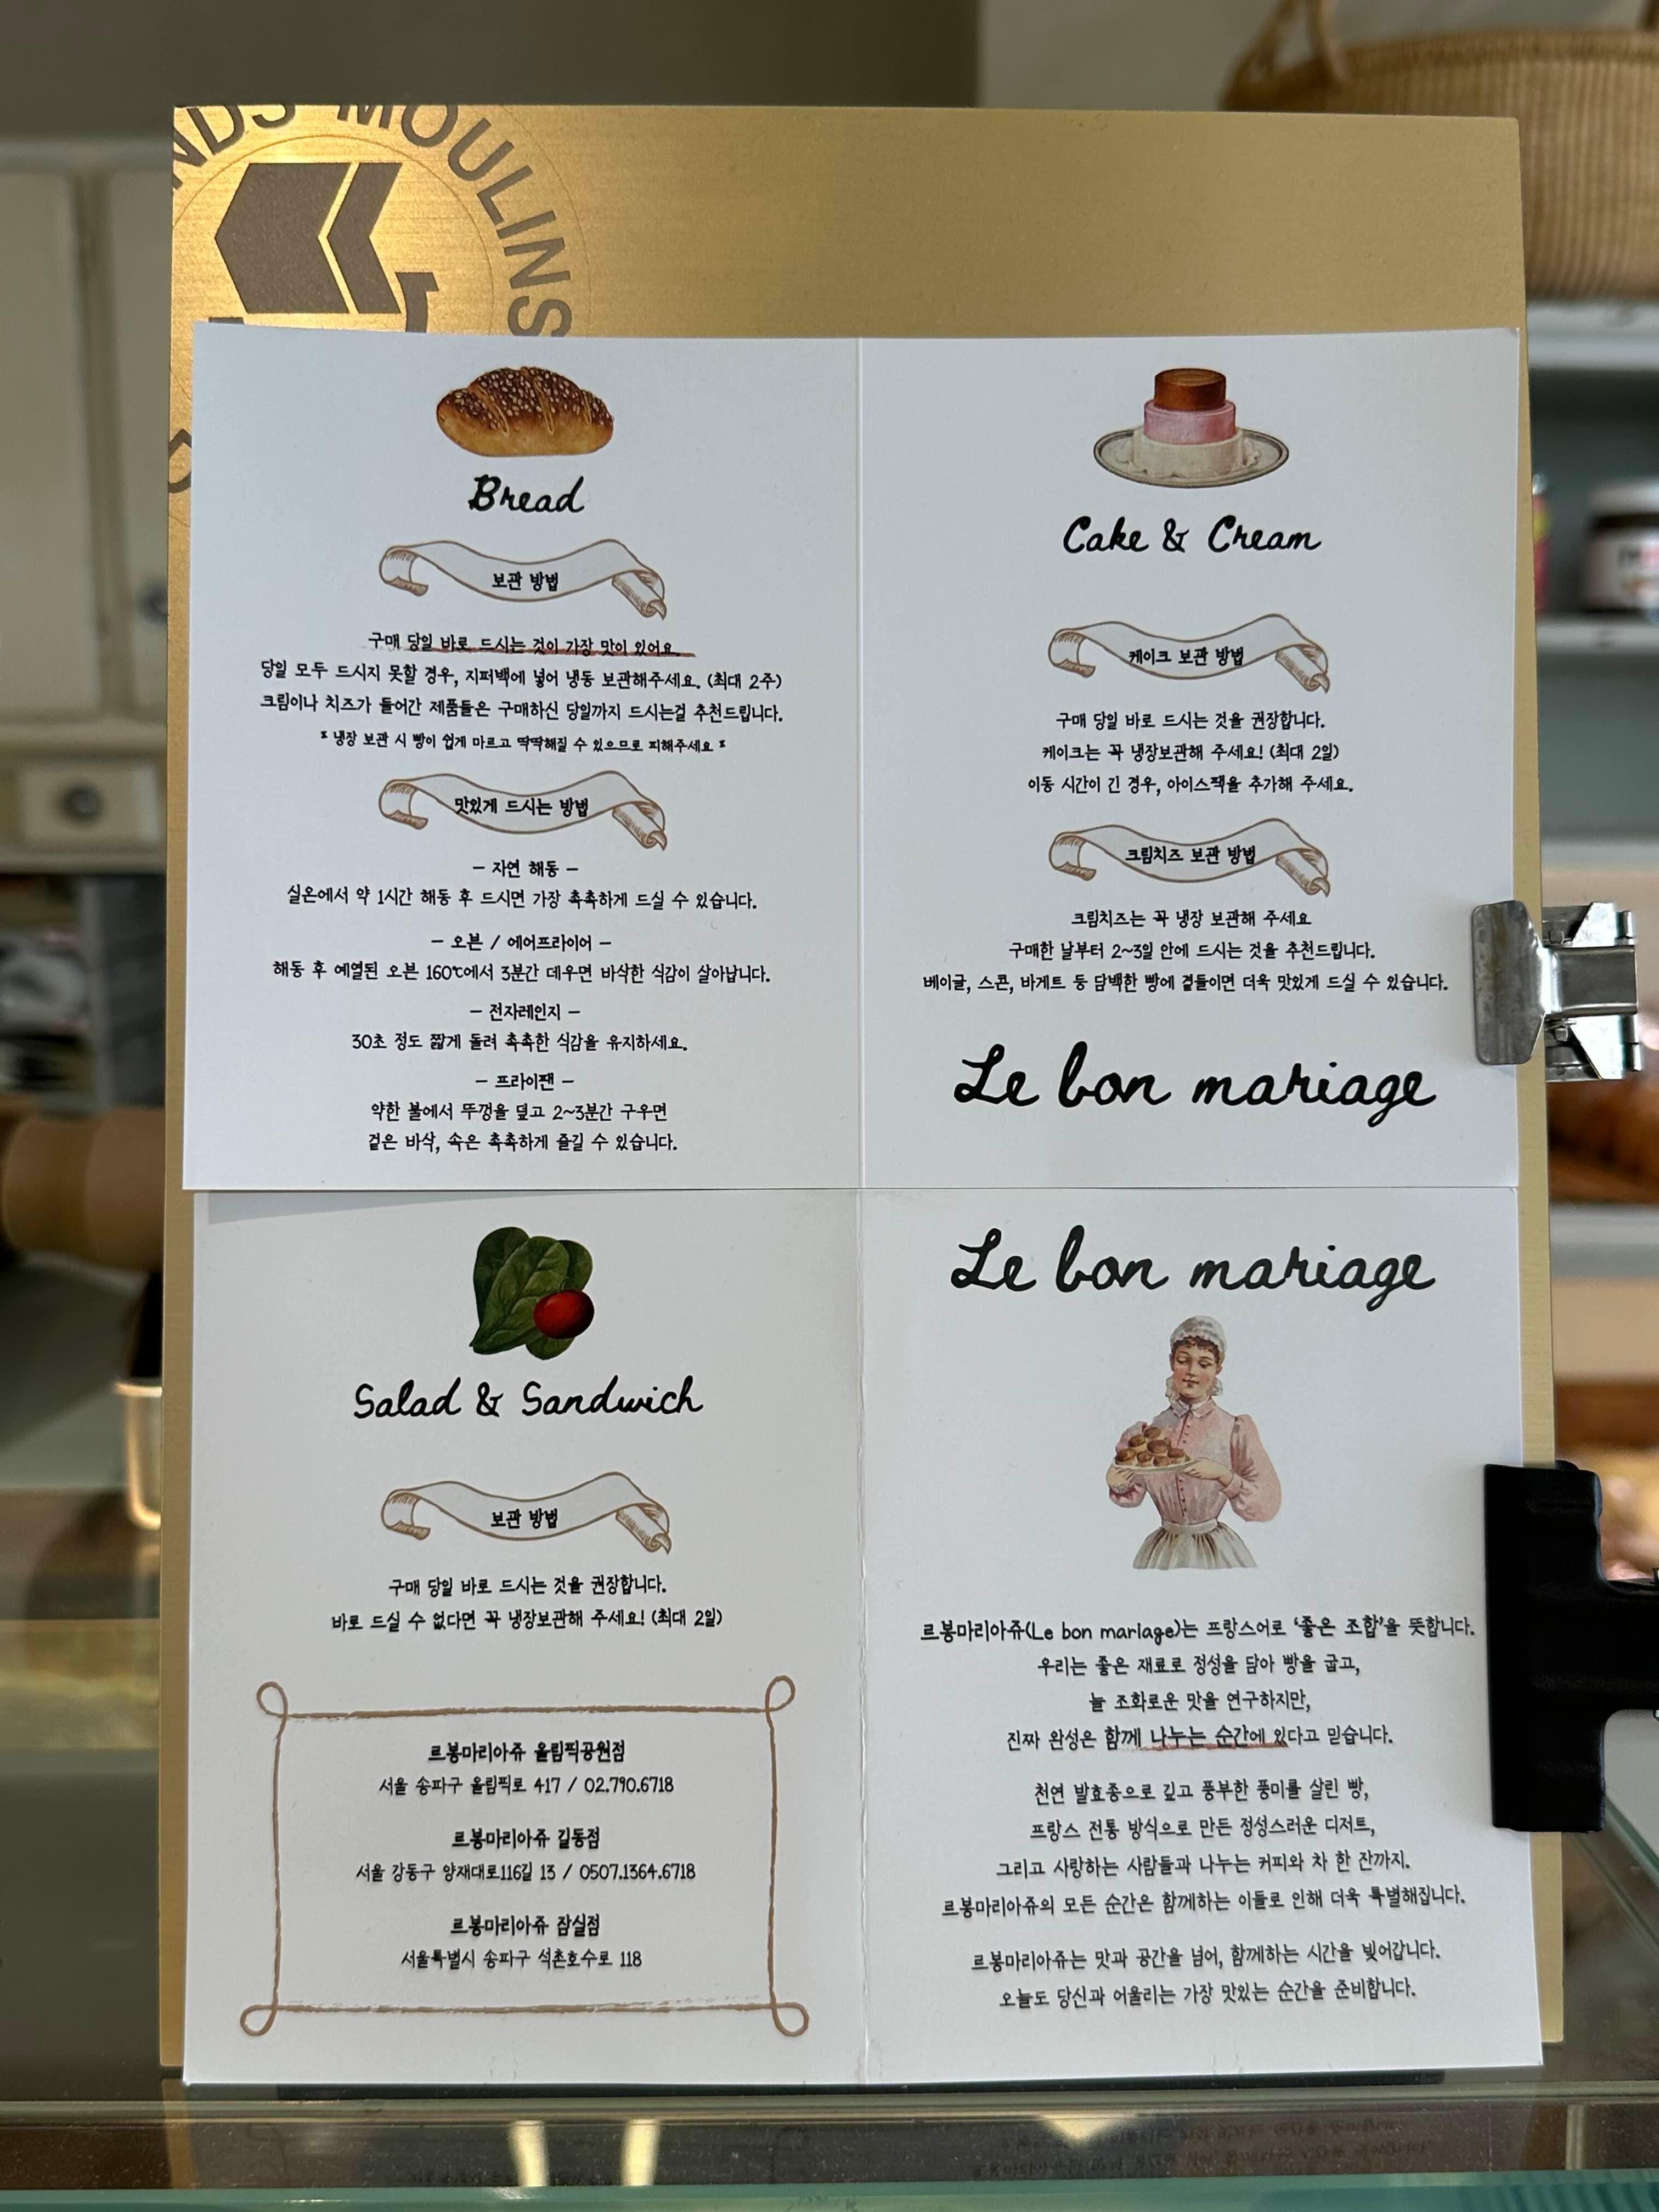 NDS MOULINS
Bread
보관 방법
구매 당일 바로 드시는 것이 가장 맛이 있어요.
당일 모두 드시지 못할 경우, 지퍼백에 넣어 냉동 보관해주세요. (최대 2주)
크림이나 치즈가 들어간 제품들은 구매하신 당일까지 드시는걸 추천드립니다.
* 냉장 보관 시 빵이 쉽게 마르고 딱딱해질 수 있으므로 피해주세요 *
맛있게 드시는 방법
– 자연 해동 –
실온에서 약 1시간 해동 후 드시면 가장 촉촉하게 드실 수 있습니다.
– 오븐 / 에어프라이어 –
해동 후 예열된 오븐 160℃에서 3분간 데우면 바삭한 식감이 살아납니다.
– 전자레인지 –
30초 정도 짧게 돌려 촉촉한 식감을 유지하세요.
– 프라이팬 –
약한 불에서 뚜껑을 덮고 2~3분간 구우면
겉은 바삭, 속은 촉촉하게 즐길 수 있습니다.
Cake & Cream
케이크 보관 방법
구매 당일 바로 드시는 것을 권장합니다.
케이크는 꼭 냉장보관해 주세요! (최대 2일)
이동 시간이 긴 경우, 아이스팩을 추가해 주세요.
크림치즈 보관 방법
크림치즈는 꼭 냉장 보관해 주세요
구매한 날부터 2~3일 안에 드시는 것을 추천드립니다.
베이글, 스콘, 바게트 등 담백한 빵에 곁들이면 더욱 맛있게 드실 수 있습니다.
Le bon mariage
Salad & Sandwich
보관 방법
구매 당일 바로 드시는 것을 권장합니다.
바로 드실 수 없다면 꼭 냉장보관해 주세요! (최대 2일)
르봉마리아쥬 올림픽공원점
서울 송파구 올림픽로 417 / 02.790.6718
르봉마리아쥬 길동점
서울 강동구 양재대로116길 13 / 0507.1364.6718
르봉마리아쥬 잠실점
서울특별시 송파구 석촌호수로 118
Le bon mariage
르봉마리아쥬(Le bon mariage)는 프랑스어로 ‘좋은 조합’을 뜻합니다.
우리는 좋은 재료로 정성을 담아 빵을 굽고,
늘 조화로운 맛을 연구하지만,
진짜 완성은 함께 나누는 순간에 있다고 믿습니다.
천연 발효종으로 깊고 풍부한 풍미를 살린 빵,
프랑스 전통 방식으로 만든 정성스러운 디저트,
그리고 사랑하는 사람들과 나누는 커피와 차 한 잔까지.
르봉마리아쥬의 모든 순간은 함께하는 이들로 인해 더욱 특별해집니다.
르봉마리아쥬는 맛과 공간을 넘어, 함께하는 시간을 빚어갑니다.
오늘도 당신과 어울리는 가장 맛있는 순간을 준비합니다.